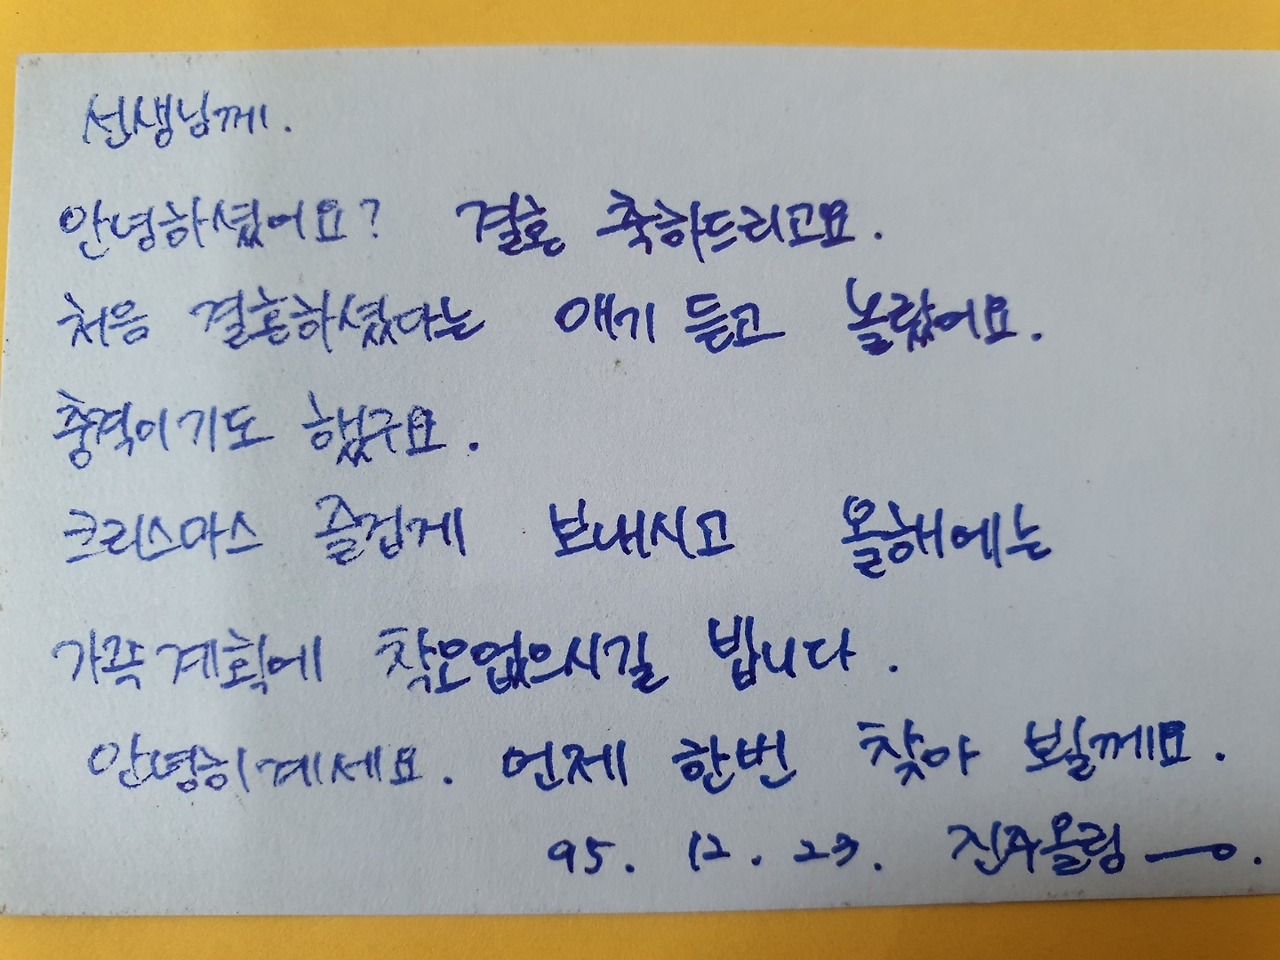 선생님께.
안녕하셨어요? 결혼 축하드리고요.
처음 결혼하셨다는 얘기 듣고 놀랐어요.
충격이기도 했구요.
크리스마스 즐겁게 보내시고 올해에는
가족계획에 착오없으시길 빕니다.
안녕히계세요. 언제 한번 찾아 뵐께요.
95. 12. 23. 진주올림